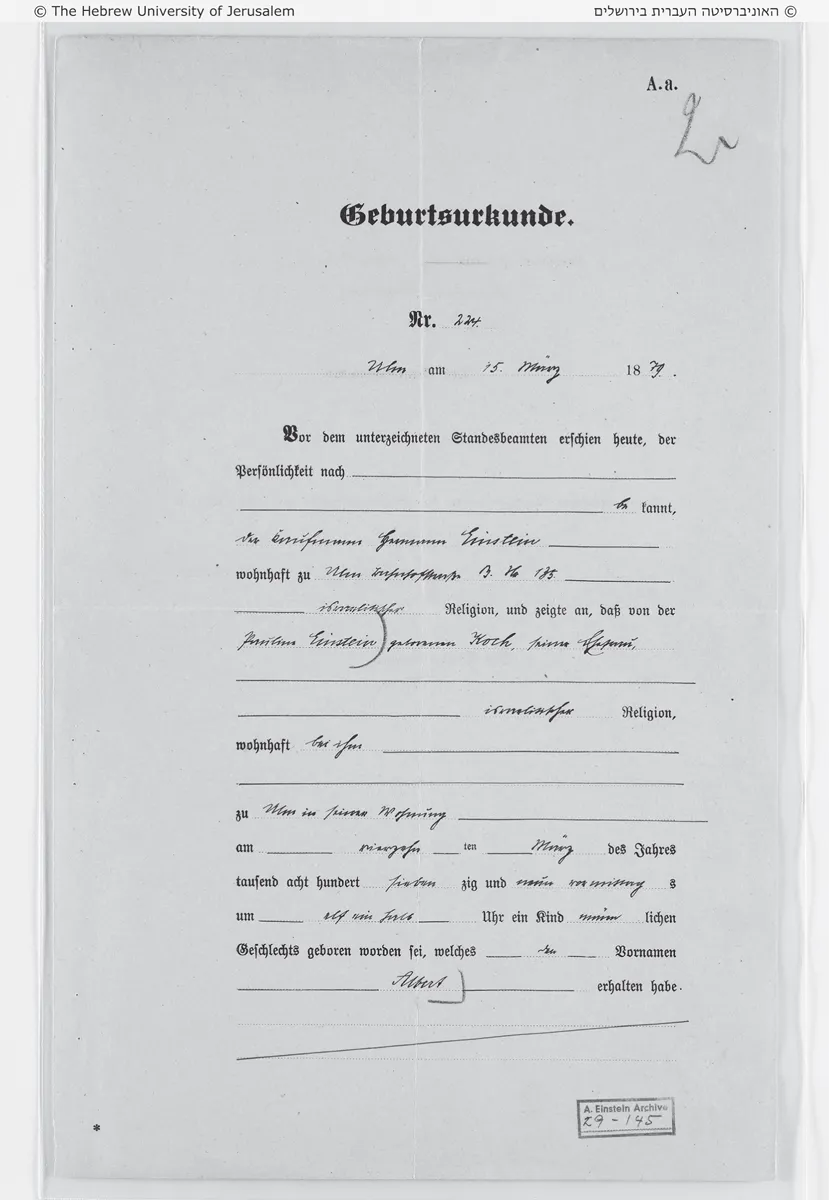 © The Hebrew University of Jerusalem
© האוניברסיטה העברית בירושלים
A.a.
Geburtsurkunde.
Nr. 224.
Ulm am 15. März 1879.
Vor dem unterzeichneten Standesbeamten erschien heute, der
Persönlichkeit nach
be kannt,
der Kaufmann Hermann Einstein
wohnhaft zu Ulm Bahnhofstraße B. No 135.
israelitischer Religion, und zeigte an, daß von der
Pauline Einstein) geborenen Koch, seiner Ehefrau,
israelitischer Religion,
wohnhaft bei ihm
zu Ulm in seiner Wohnung
am vierzehn ten März des Jahres
tausend acht hundert sieben zig und neun vormittag s
um elf ein halb Uhr ein Kind männ lichen
Geschlechts geboren worden sei, welches den Vornamen
Albert erhalten habe.
*
A. Einstein Archive
29-145